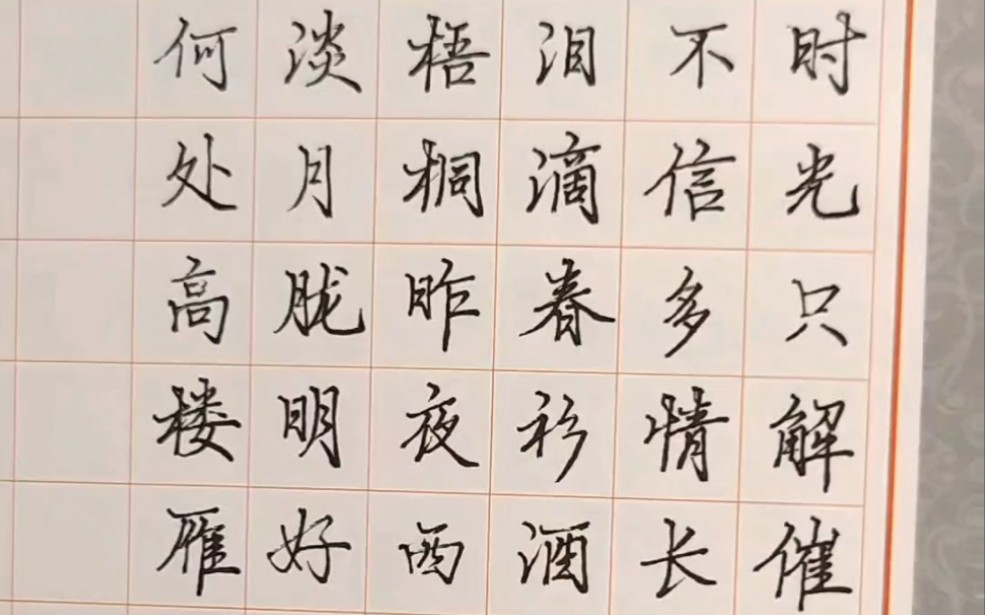 时光只解催
不信多情长
泪滴春衫酒
梧桐昨夜西
淡月胧明好
何处高楼雁